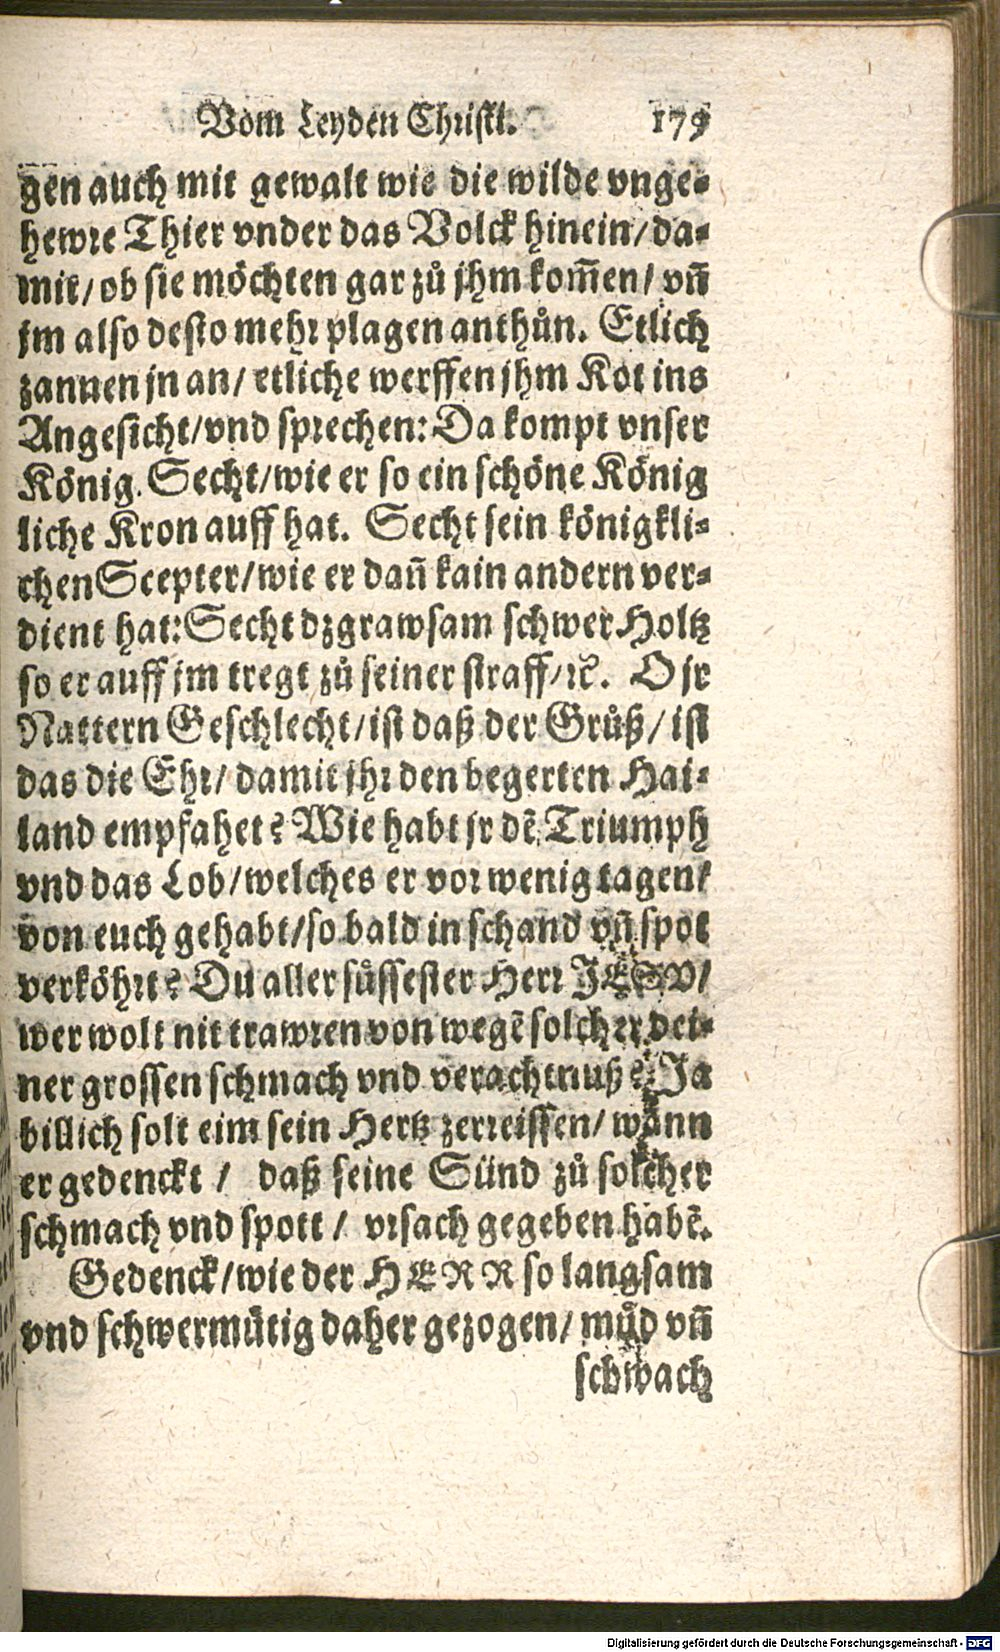 Vom Leyden Christi. 179
gen auch mit gewalt wie die wilde vnge⸗
hewre Thier vnder das Volck hinein/ da⸗
mit/ ob sie möchten gar zů jhm kom̄en/ vn̄
jm also desto mehr plagen anthůn. Etlich
zannen jn an/ etliche werffen jhm Kot ins
Angesicht/ vnd sprechen: Da kompt vnser
König. Secht/ wie er so ein schöne König
liche Kron auff hat. Secht sein königkli⸗
chen Scepter/ wie er dan̄ kain andern ver⸗
dient hat: Secht dz grawsam schwer Holtz
so er auff jm tregt zů seiner straff/ ꝛc. O jr
Nattern Geschlecht/ ist daß der Grůß/ ist
das die Ehr/ damit jhr den begerten Hai⸗
land empfahet? Wie habt jr dē Triumph
vnd das Lob/ welches er vor wenig tagen/
von euch gehabt/ so bald in schand vn̄ spot
verköhrt? Du aller sůssester Herr JESV/
wer wolt nit trawren von wegē solcher dei⸗
ner grossen schmach vnd verachtnuß? Ja
billich solt eim sein Hertz zerreissen/ wann
er gedenckt / daß seine Sünd zů solcher
schmach vnd spott / vrsach gegeben habē.
Gedenck/ wie der HERR so langsam
vnd schwermütig daher gezogen/ müd vn̄
schwach
Digitalisierung gefördert durch die Deutsche Forschungsgemeinschaft - DFG